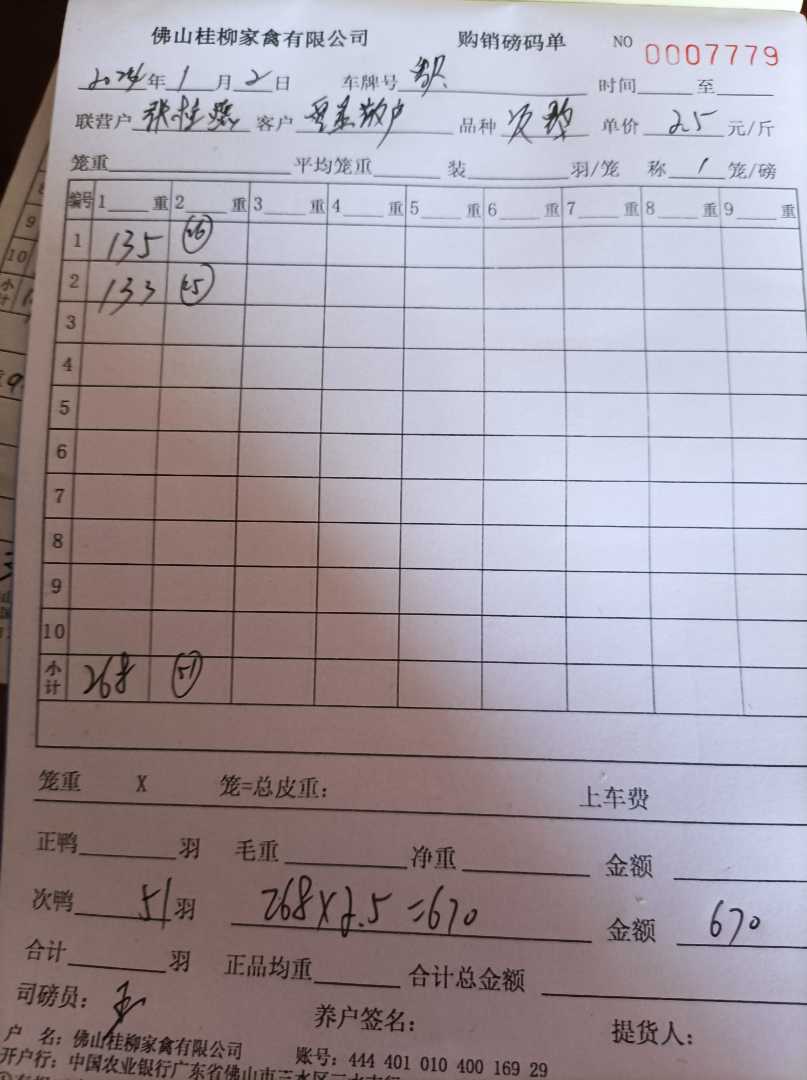 佛山桂柳家禽有限公司 购销磅码单 NO 0007779
2024年1月2日 车牌号 时间 至
联营户 张桂 客户 散户 品种 次鸭 单价 2.5 元/斤
笼重 平均笼重 装 羽/笼 称 1 笼/磅
编号 1 重 2 重 3 重 4 重 5 重 6 重 7 重 8 重 9 重
1 135 26
2 133 25
3
4
5
6
7
8
9
10
小计 268 51
笼重 X 笼=总皮重: 上车费
正鸭 羽 毛重 净重 金额
次鸭 51 羽 268×2.5=670 金额 670
合计 羽 正品均重 合计总金额
司磅员: 养户签名: 提货人:
户 名: 佛山桂柳家禽有限公司 账号: 444 401 010 400 169 29
开户行: 中国农业银行广东省佛山市三水区